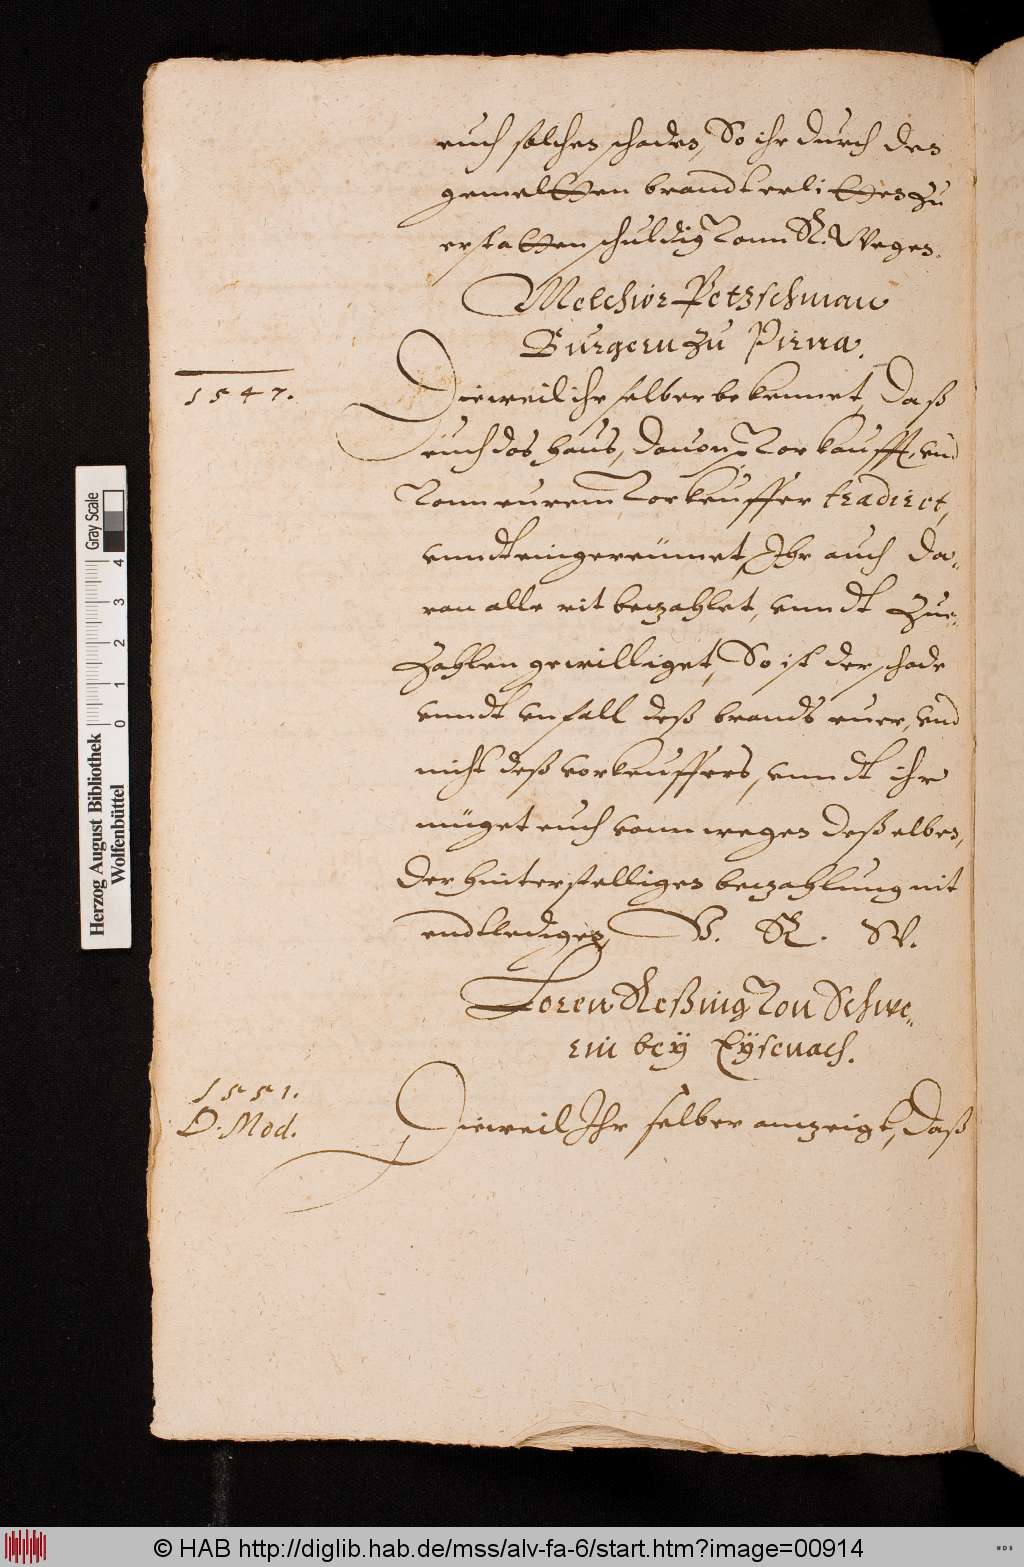 euch solches schades, So ihr durch den
gemeltten brandt erlitten zu
erstatten schuldig Vonn R. Weges.
Melchior Petzschman
Burgern zu Pirna.
1547.
Dieweil ihr selber bekennet, Daß
euch das haus, dauon Vorkaufft, und
Vonn eurem Vorkeuffer tradiret,
vnndt eingereümet, Ihr auch da-
ran alle eit bezahlet, vnndt zue
zahlen gewilliget, So ist der schade
vnndt vnfall deß brands euer, vnd
nicht deß vorkeuffers, vnndt ihr
müget euch vonn weges deßelben,
der hinterstelliges bezahlung nit
endtlediges, V. R. W.
Loren Reßing Von Schwe-
rin bey Eysenach.
1551.
D. Mod.
Dieweil Ihr selber anzeigt, Daß
Herzog August Bibliothek
Wolfenbüttel
Gray Scale
0 1 2 3 4
© HAB http://diglib.hab.de/mss/alv-fa-6/start.htm?image=00914